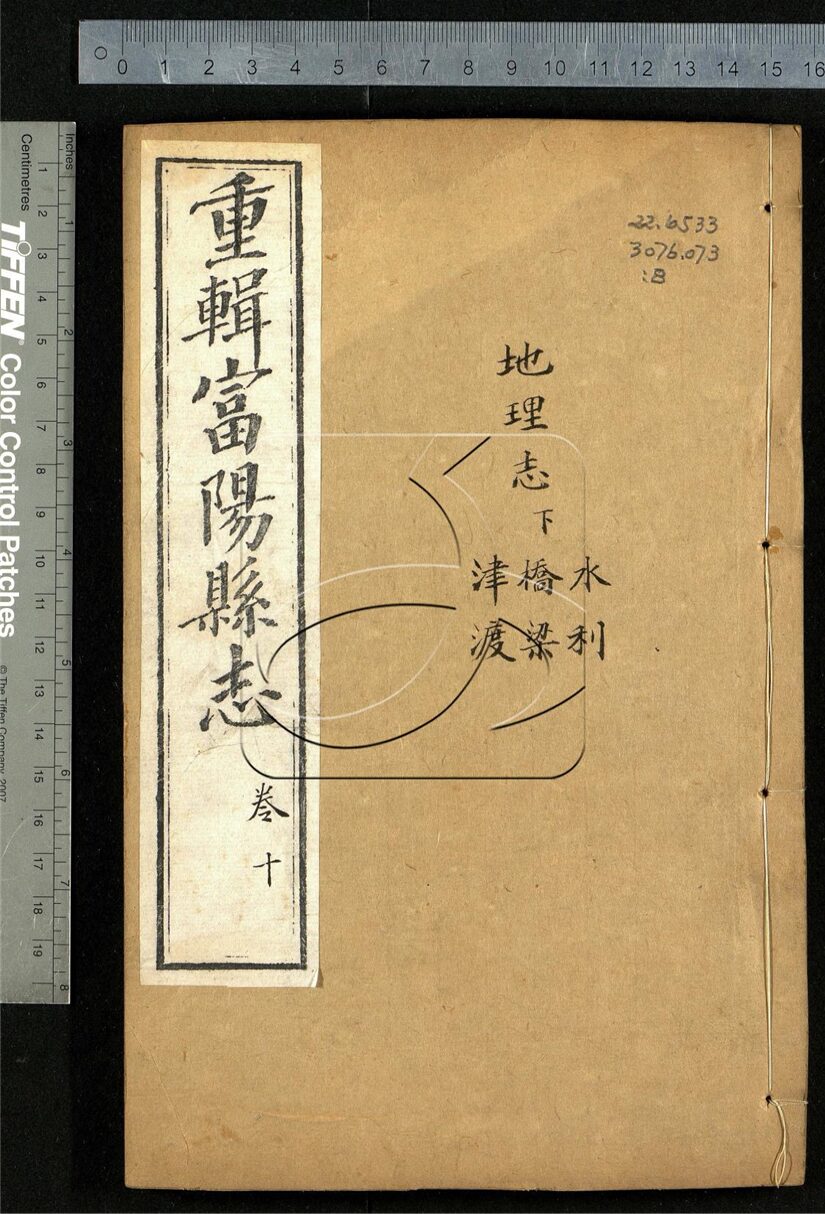 0 1 2 3 4 5 6 7 8 9 10 11 12 13 14 15 16
Inches
1 2 3 4 5 6 7 8
Centimetres
1 2 3 4 5 6 7 8 9 10 11 12 13 14 15 16 17 18 19
TIFFEN® Color Control Patches
© The Tiffen Company, 2007
22.6533
3076.073
:B
地理志下
水利
橋梁
津渡
重輯富陽縣志
卷十